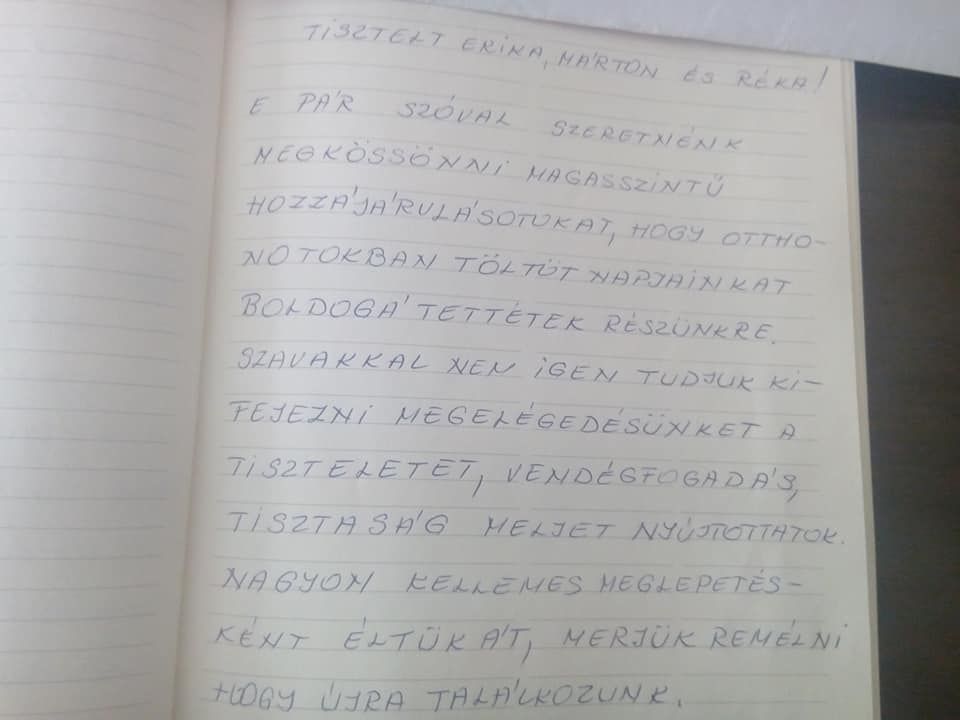 TISZTELT ERIKA, MÁRTON ÉS RÉKA!
E PÁR SZÓVAL SZERETNÉNK
MEGKÖSSÖNNI MAGASSZINTŰ
HOZZÁJÁRULÁSOTUKAT, HOGY OTTHO-
NOTOKBAN TÖLTÖT NAPJAINKAT
BOLDOGÁ TETTÉTEK RÉSZÜNKRE.
SZAVAKKAL NEM IGEN TUDJUK KI-
FEJEZNI MEGELÉGEDÉSÜNKET A
TISZTELETET, VENDÉGFOGADÁS,
TISZTASÁG MELJET NYÚJTOTTATOK.
NAGYON KELLEMES MEGLEPETÉS-
KÉNT ÉLTÜK ÁT, MERJÜK REMÉLNI
HOGY ÚJRA TALÁLKOZUNK.